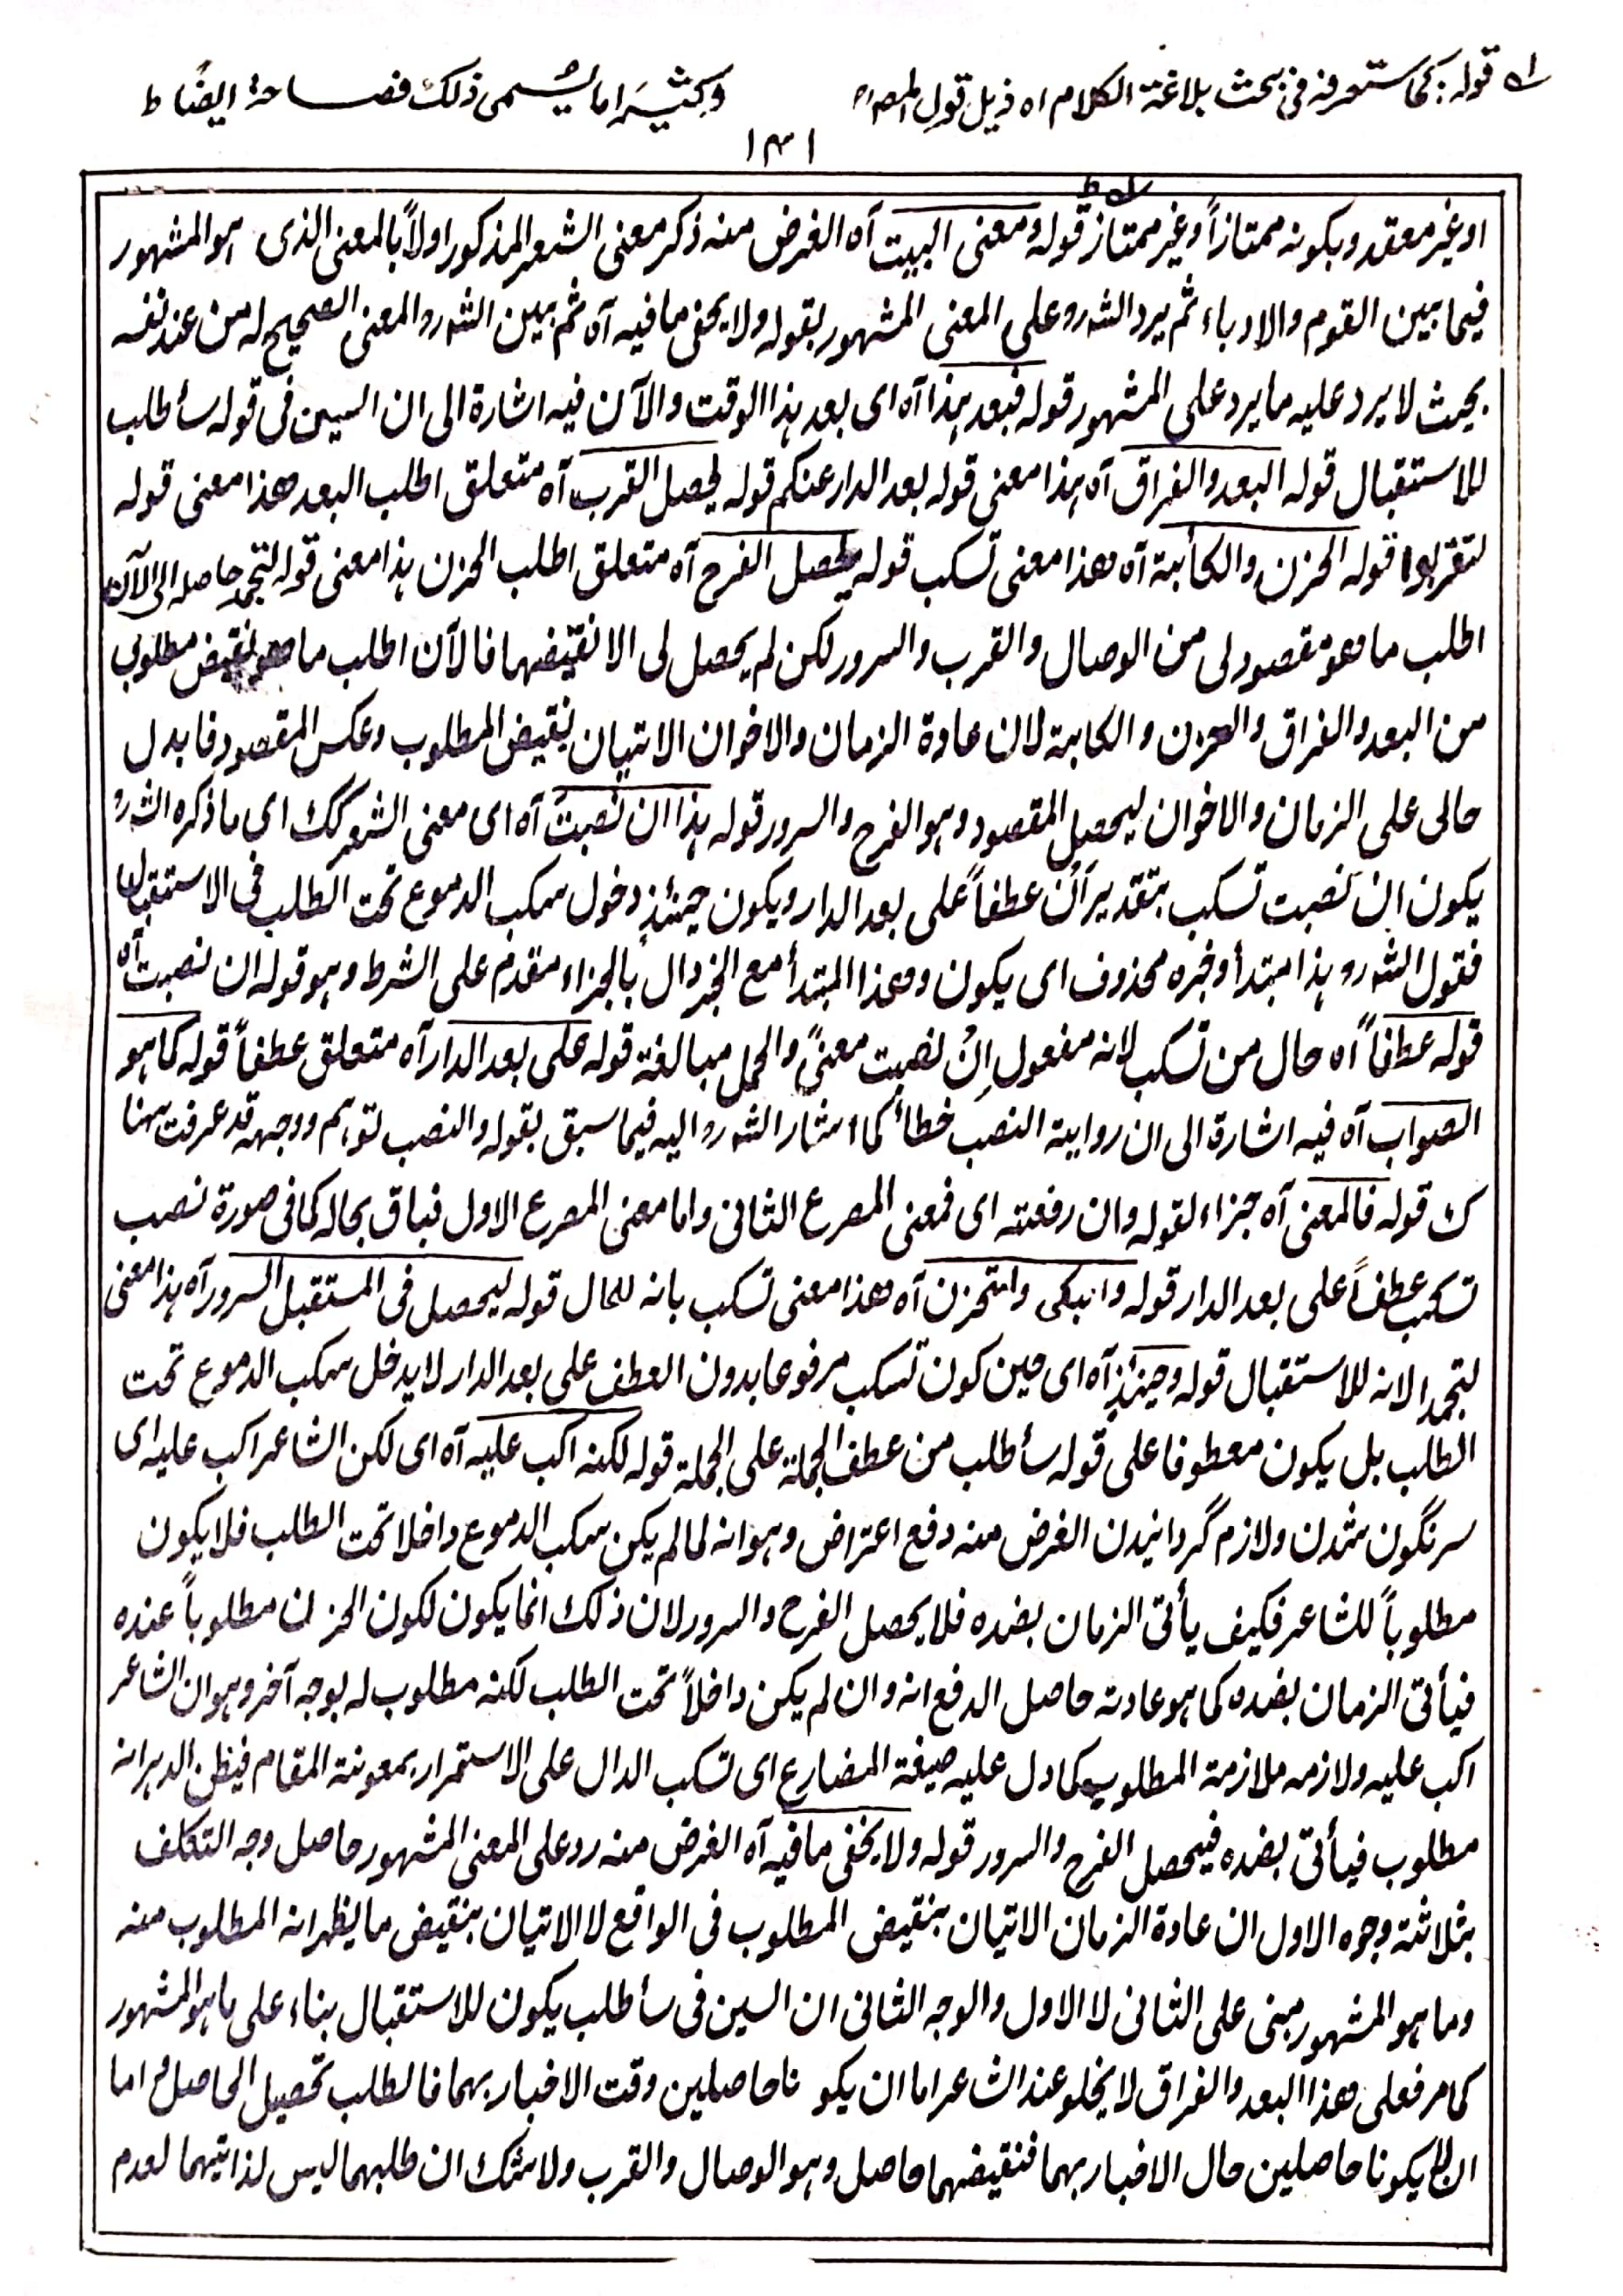 له قوله: كما ستعرفه فى بحث بلاغة الكلام اه ذيل قول المص؟
وكثيرا ما يسمى ذلك فصاحة ايضًا ط
١٣١
او غير معقد وبكونه ممتازاً وغير ممتاز قوله ومعنى البيت آه الغرض منه ذكر معنى الشعر المذكور اولاً بالمعنى الذى هو المشهور
فيما بين القوم والادباء ثم يرد الشہ رو على المعنى المشهور بقوله ولا يخفى ما فيه آه ثم يبين الشہ رو المعنى الصحيح له من عند نفسه
بحيث لا يرد عليه ما يرد على المشهور قوله فبعد هذا آه اى بعد هذا الوقت والآن فيه اشارة الى ان السين فى قوله سأطلب
للاستقبال قوله البعد والفراق آه هذا معنى قوله بعد الدار عنكم قوله ليحصل القرب آه متعلق اطلب البعد هذا معنى قوله
لتقربوا قوله الحزن والكأبة آه هذا معنى تسكب قوله ليحصل الفرح آه متعلق اطلب الحزن هذا معنى قوله لتجمد حاصله الى الآن
اطلب ما هو مقصود لى من الوصال والقرب والسرور لكن لم يحصل لى الا نقيضها فالآن اطلب ما هو نقيض مطلوبى
من البعد والفراق والحزن والكابة لان عادة الزمان والاخوان الاتيان بنقيض المطلوب وعكس المقصود فابدل
حالى على الزمان والاخوان ليحصل المقصود وهو الفرح والسرور قوله هذا ان نصبتَ آه اى معنى الشعر كك اى ما ذكره الشہ رو
يكون ان نصبت تسكب بتقدير أن عطفاً على بعد الدار ويكون حينئذٍ دخول سكب الدموع تحت الطلب فى الاستقبال
فقول الشہ رو هذا مبتدأ وخبره محذوف اى يكون وهذا المبتدأ مع الخبر دال بالجزاء مقدم على الشرط وهو قوله ان نصبت آه
قوله عطفاً آه حال من تسكب لانه مفعول اِنْ نصبت معنًى والحمل مبالغة قوله على بعد الدار آه متعلق عطفاً قوله كما هو
الصواب آه فيه اشارة الى ان رواية النصب خطأ كما اشار الشہ رو اليه فيما سبق بقوله والنصب توهم ووجهه قد عرفت هنا
ك قوله فالمعنى آه جزاء لقوله وان رفعته اى فمعنى المصرع الثانى واما معنى المصرع الاول فباق بحاله كما فى صورة نصب
تسكب عطفاً على بعد الدار قوله وابكى واتحزن آه هذا معنى تسكب بانه للحال قوله ليحصل فى المستقبل السرور آه هذا معنى
لتجمد الانه للاستقبال قوله وحينئذٍ آه اى حين كون تسكب مرفوعا بدون العطف على بعد الدار لا يدخل سكب الدموع تحت
الطلب بل يكون معطوفا على قوله سأطلب من عطف الجملة على الجملة قوله لكنه اكب عليه آه اى لكن الشاعر اكب عليه اى
سرنگون شدن ولازم گردانيدن الغرض منه دفع اعتراض وهو انه لما لم يكن سكب الدموع داخلا تحت الطلب فلا يكون
مطلوباً للشاعر فكيف يأتى الزمان بضده فلا يحصل الفرح والسرور لان ذلك انما يكون لكون الحزن مطلوباً عنده
فيأتى الزمان بضده كما هو عادته حاصل الدفع انه وان لم يكن داخلاً تحت الطلب لكنه مطلوب له بوجه آخر وهو ان الشاعر
اكب عليه ولازمه ملازمة المطلوب كما دل عليه صيغة المضارع اى تسكب الدال على الاستمرار بمعونة المقام فيظن الدهر انه
مطلوب فيأتى بضده فيحصل الفرح والسرور قوله ولا يخفى ما فيه آه الغرض منه رد على المعنى المشهور حاصل وجه التكلف
بثلاثة وجوه الاول ان عادة الزمان الاتيان بنقيض المطلوب فى الواقع لا الاتيان بنقيض ما يظهر انه المطلوب منه
وما هو المشهور مبنى على الثانى لا الاول والوجه الثانى ان السين فى سأطلب يكون للاستقبال بناء على ما هو المشهور
كما مر فعلى هذا البعد والفراق لا يخلو عند الشاعر اما ان يكو نا حاصلين وقت الاخبار بهما فالطلب تحصيل الحاصل واما
ان لا يكونا حاصلين حال الاخبار بهما فنقيضهما حاصل وهو الوصال والقرب ولا شك ان طلبهما ليس لذاتيهما لعدم